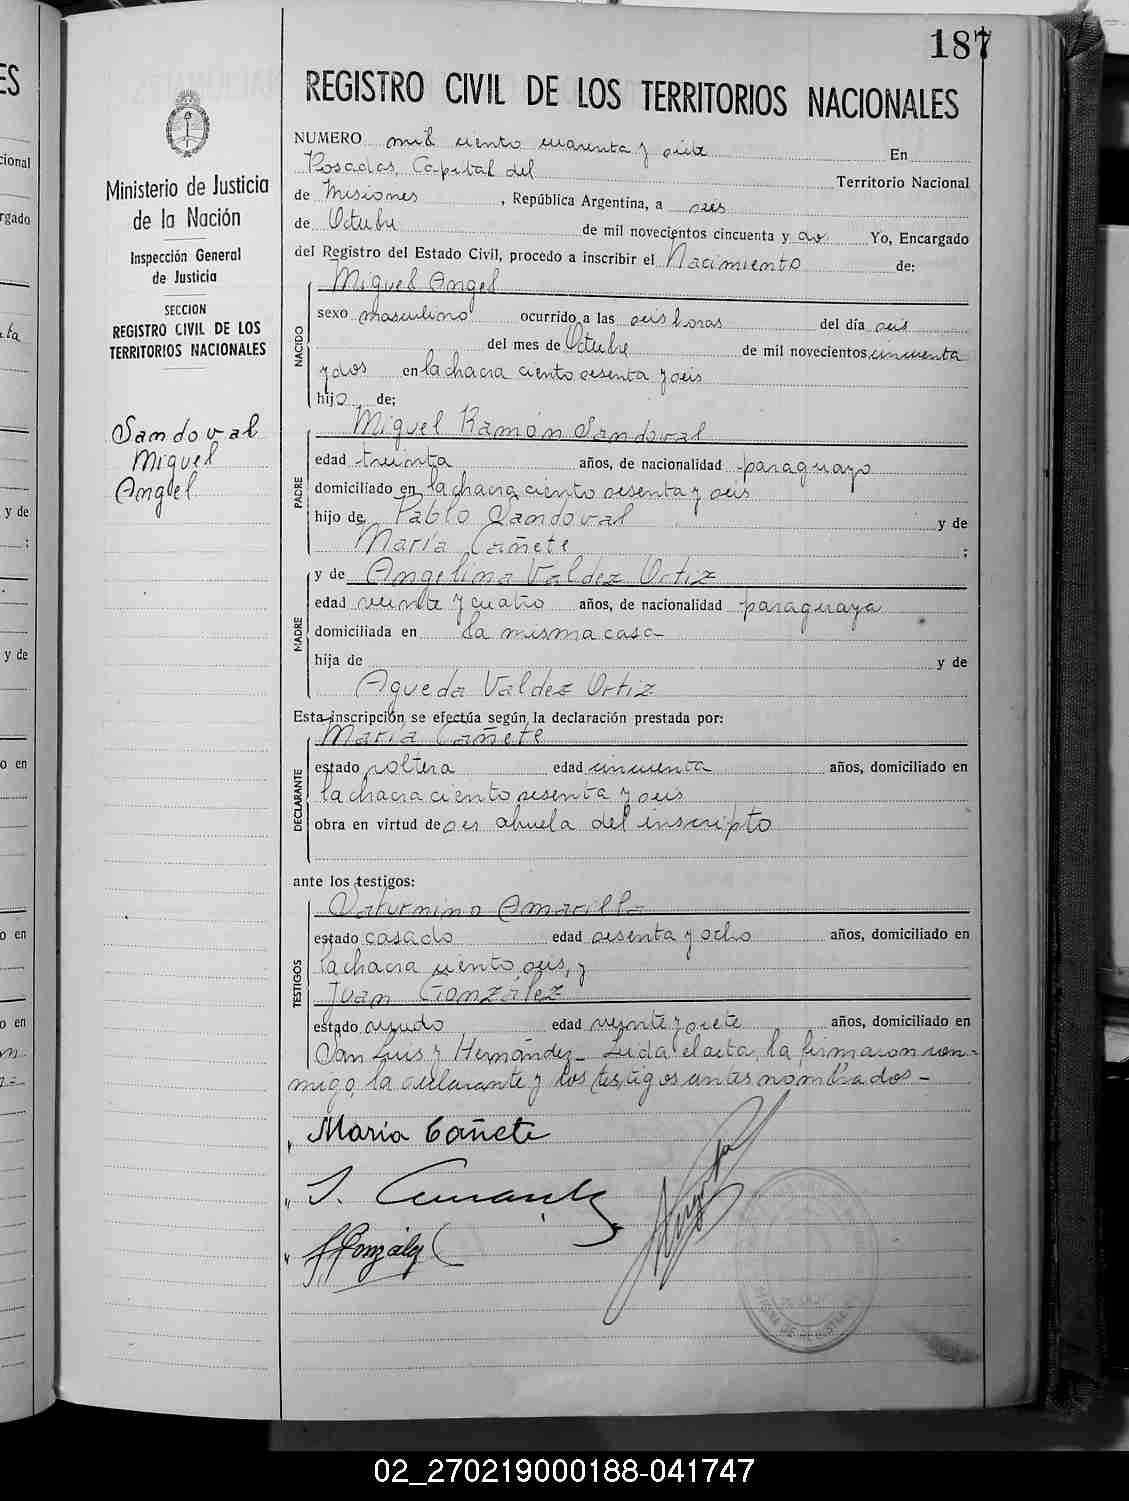 187
REGISTRO CIVIL DE LOS TERRITORIOS NACIONALES
Ministerio de Justicia
de la Nación
Inspección General
de Justicia
SECCION
REGISTRO CIVIL DE LOS
TERRITORIOS NACIONALES
Sandoval
Miguel
Angel
NUMERO mil ciento cuarenta y siete En
Posadas, Capital del Territorio Nacional
de Misiones, República Argentina, a seis
de Octubre de mil novecientos cincuenta y dos Yo, Encargado
del Registro del Estado Civil, procedo a inscribir el Nacimiento de:
Miguel Angel
NACIDO
sexo masculino ocurrido a las seis horas del día seis
del mes de Octubre de mil novecientos cincuenta
y dos en la chacra ciento sesenta y seis
hijo de;
Miguel Ramón Sandoval
PADRE
edad treinta años, de nacionalidad paraguayo
domiciliado en la chacra ciento sesenta y seis
hijo de Pablo Sandoval y de
María Cañete ;
y de Angelina Valdez Ortiz
MADRE
edad veinte y cuatro años, de nacionalidad paraguaya
domiciliada en la misma casa
hija de y de
Agueda Valdez Ortiz
Esta inscripción se efectúa según la declaración prestada por:
María Cañete
DECLARANTE
estado soltera edad cincuenta años, domiciliado en
la chacra ciento sesenta y seis
obra en virtud de ser abuela del inscripto
ante los testigos:
Saturnino Amarilla
TESTIGOS
estado casado edad sesenta y ocho años, domiciliado en
la chacra ciento seis, y
Juan González
estado viudo edad veinte y siete años, domiciliado en
San Luis y Hernández_ Leida el acta, la firmaron con-
migo, la declarante y los testigos antes nombrados_
María Cañete
J. González
02_270219000188-041747